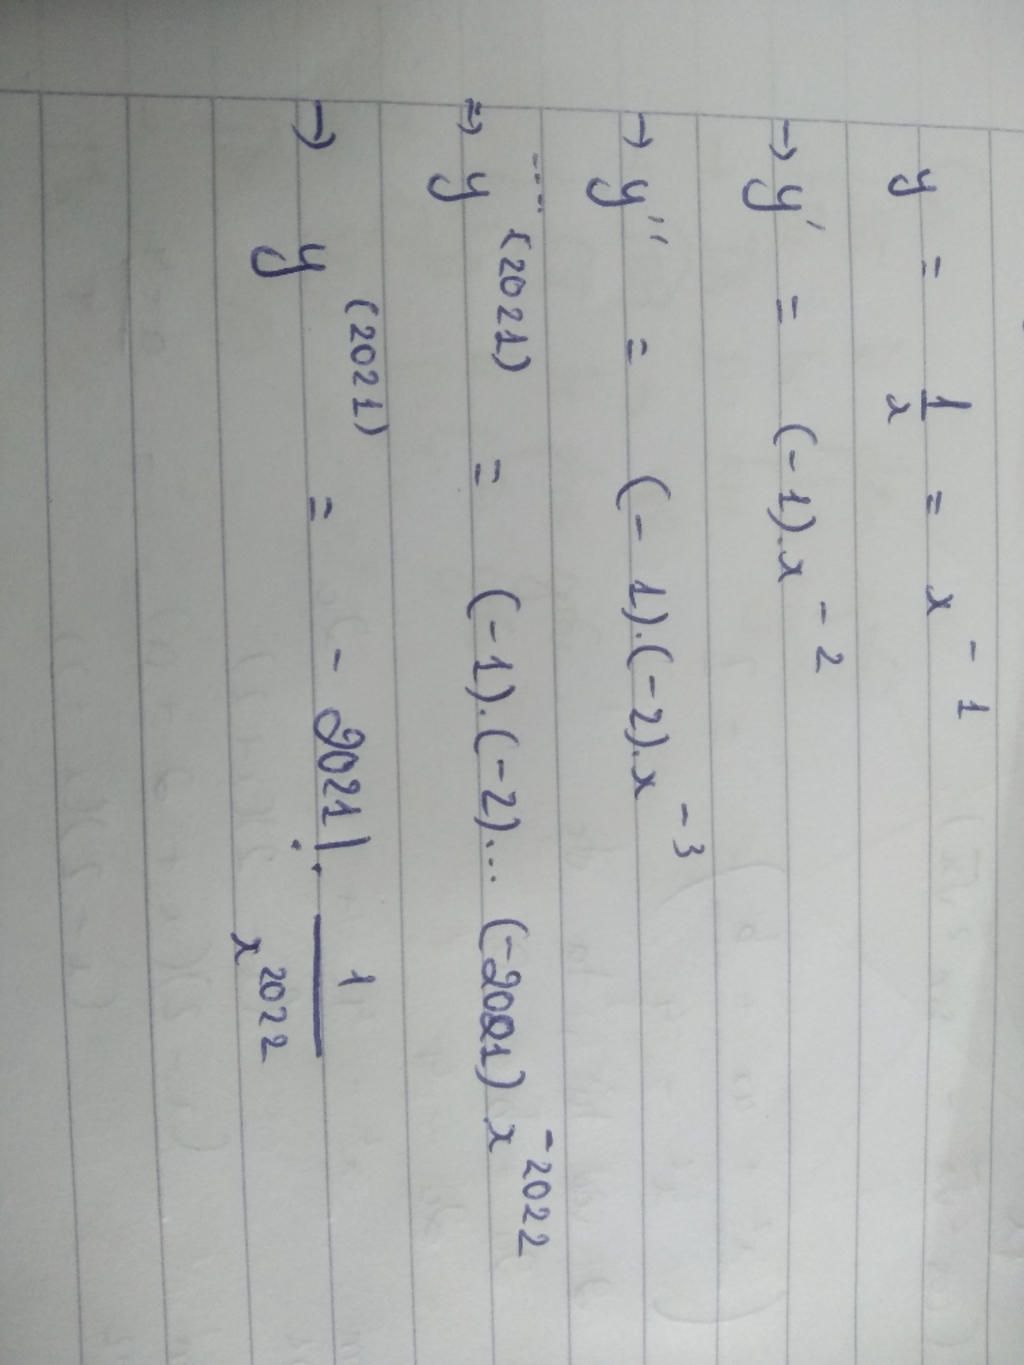 y = 1/x = x^-1
→ y' = (-1).x^-2
→ y'' = (-1).(-2).x^-3
....
⇒ y^(2021) = (-1).(-2)...(-2021) x^-2022
→ y^(2021) = - 2021! . 1/x^2022